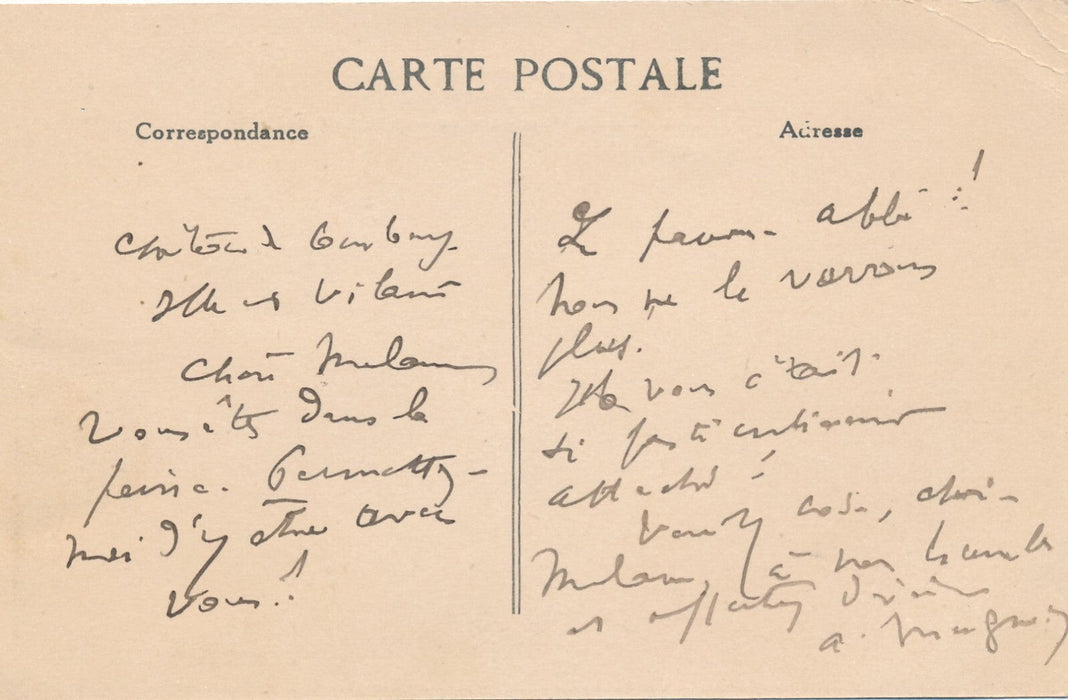 CARTE POSTALE
Correspondance
Château de
Ille et Vilaine
Chère Madame
Vous êtes dans la
peine. Permettez-
moi d'y être avec
vous !
Adresse
Le pauvre abbé !
nous ne le verrons
plus.
Il vous était
si particulièrement
attaché !
Veuillez croire, chère
Madame, à mes
et affectueux
a.